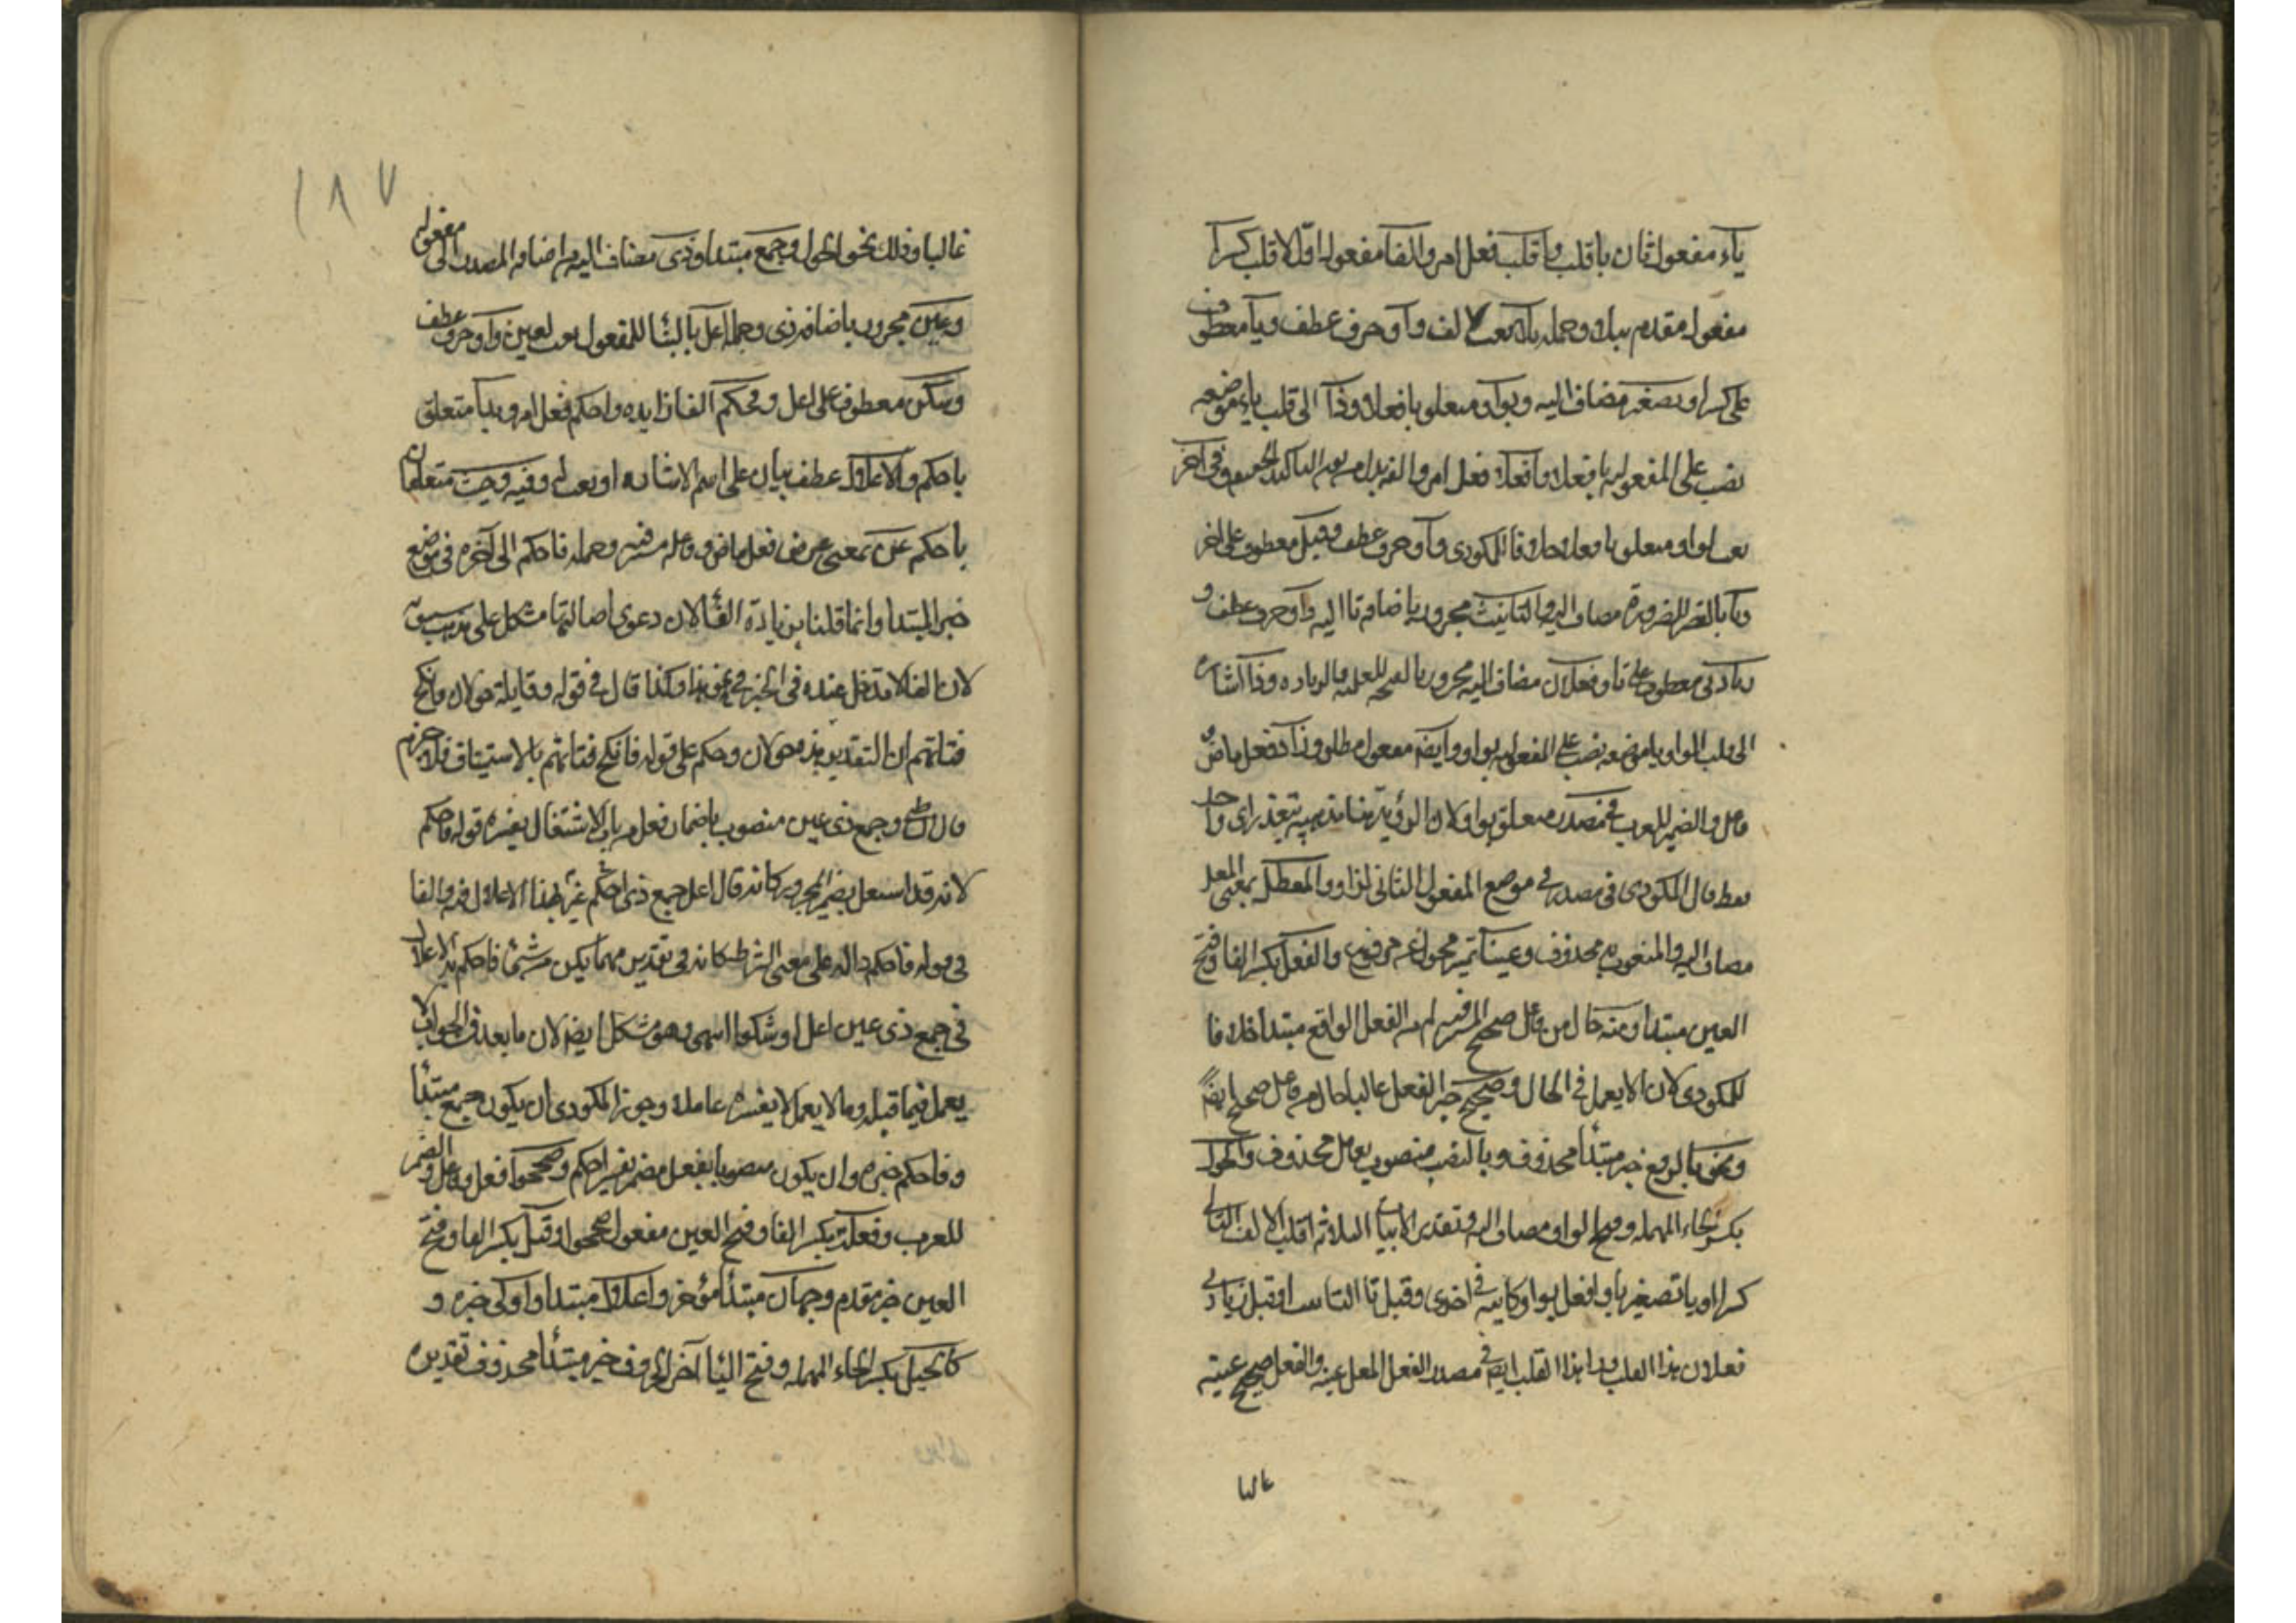 ياء مفعول ثان باقلب واقلب فعل امر والفا مفعول اول لاقلب كسرا
مفعول مقدم بتلا وجملة تلا نعت لالف واو حرف عطف وياء معطوف
على كسرا وتصغير مضاف اليه وبواو متعلق بافعلا وذا الى قلب ياء موضعه
نصب على المفعولية بافعلا وافعلا فعل امر والفه بدل من نون التاكيد الخفيفة وفي آخر
نعت لواو ومتعلق بافعلا وحلا قاله المكودى واو حرف عطف وقبل معطوف على اخر
وتا بالقصر للضرورة مضاف اليه والتانيث مجرور باضافة تا اليه واو حرف عطف و
زيادتى معطوف على تا وفعلان مضاف اليه مجرور بالفتحة للعلمية والزيادة وذا اشارة
الى قلب الواو ياء موضعه نصب على المفعولية براوا وايضا مفعول مطلق وراوا فعل ماض و
فاعل والضمير للعرب في مصدر متعلق براوا لا والرؤية هنا مذهبية تتعدى الى واحد
فقط قال المكودى في مصدر في موضع المفعول الثاني لراوا والمعتل بمعنى المعل
مضاف اليه والمنعوت محذوف وعينا تمييز محول عن مرفوع والفعل بكسر الفا وفتح
العين مبتدا ومنه حال من فاعل صحيح المستتر فيه لا من الفعل الواقع مبتدا خلافا
للمكودى لان الا يعمل في الحال وصحيح خبر الفعل غالبا حال من فاعل صحيح ايضا
ونحو بالرفع خبر مبتدا محذوف وبالنصب منصوب بعامل محذوف والحول
بكسر الحاء المهملة وفتح الواو مضاف اليه وتقدير الابيات الثلاثة اقلب الالف التالي
كسرا او ياء تصغير ياء وافعل بواو كاينة في اخر وقبل تا التانيث او قبل زيادتي
فعلان هذا القلب وراوا هذا القلب ايضا في مصدر الفعل المعل عينه والفعل صحيح عينه
غالبا
١٨٧
غالبا وذلك نحو الحول وجمع مبتدا وذى مضاف اليه من اضافة المصدر الى مفعوله
وعين مجرور باضافة ذى وجملة اعل بالبنا للمفعول نعت لعين واو حرف عطف
وسكن معطوف على اعل وفاحكم الفا زايدة واحكم فعل امر وبذا متعلق
باحكم والاعلال عطف بيان على اسم الاشارة او نعت له وفيه وحيث متعلقان
باحكم عن بمعنى عرض فعل ماض وفاعله مستتر فيه وجملة فاحكم الى آخره في موضع
خبر المبتدا وانما قلنا بزيادة الفا لان دعوى اصالتها مشكل على مذهب سيبويه
لان الفا لا تدخل عنده في الخبر في نحو هذا وكذا قال في قوله وقايلة خولان فانكح
فتاتهم ان التقدير هذه خولان وحكم على قوله فانكح فتاتهم بالاستيناف فلا جرم
قال الشاطبي وجمع ذى عين منصوب باضمار فعل من باب الاشتغال يفسره قوله فاحكم
لانه قد اشتغل بضمير المجرور كانه قال اعل جمع ذى احكم عين بهذا الاعلال فيه والفا
في قوله فاحكم دالة على معنى الشرط كانه في تقدير مهما يكن من شئ فاحكم بذا الاعلال
في جمع ذى عين اعل او شكها اسمى وهو مشكل ايضا لان ما بعد فا الجواب لا
يعمل فيما قبله وما لا يعمل لا يفسر عاملا وجوز المكودى ان يكون جمع مبتدا
وفاحكم خبره وان يكون منصوبا بفعل مضمر يفسره احكم وصححوا فعل وفاعل والضمير
للعرب وفعلة بكسر الفا وفتح العين مفعول صححوا وقيل بكسر الفا وفتح
العين خبر مقدم وجهان مبتدا مؤخر واعلال مبتدا واولى خبره و
كالحيل بكسر الحاء المهملة وفتح اليا آخر الحروف خبر مبتدا محذوف تقديره